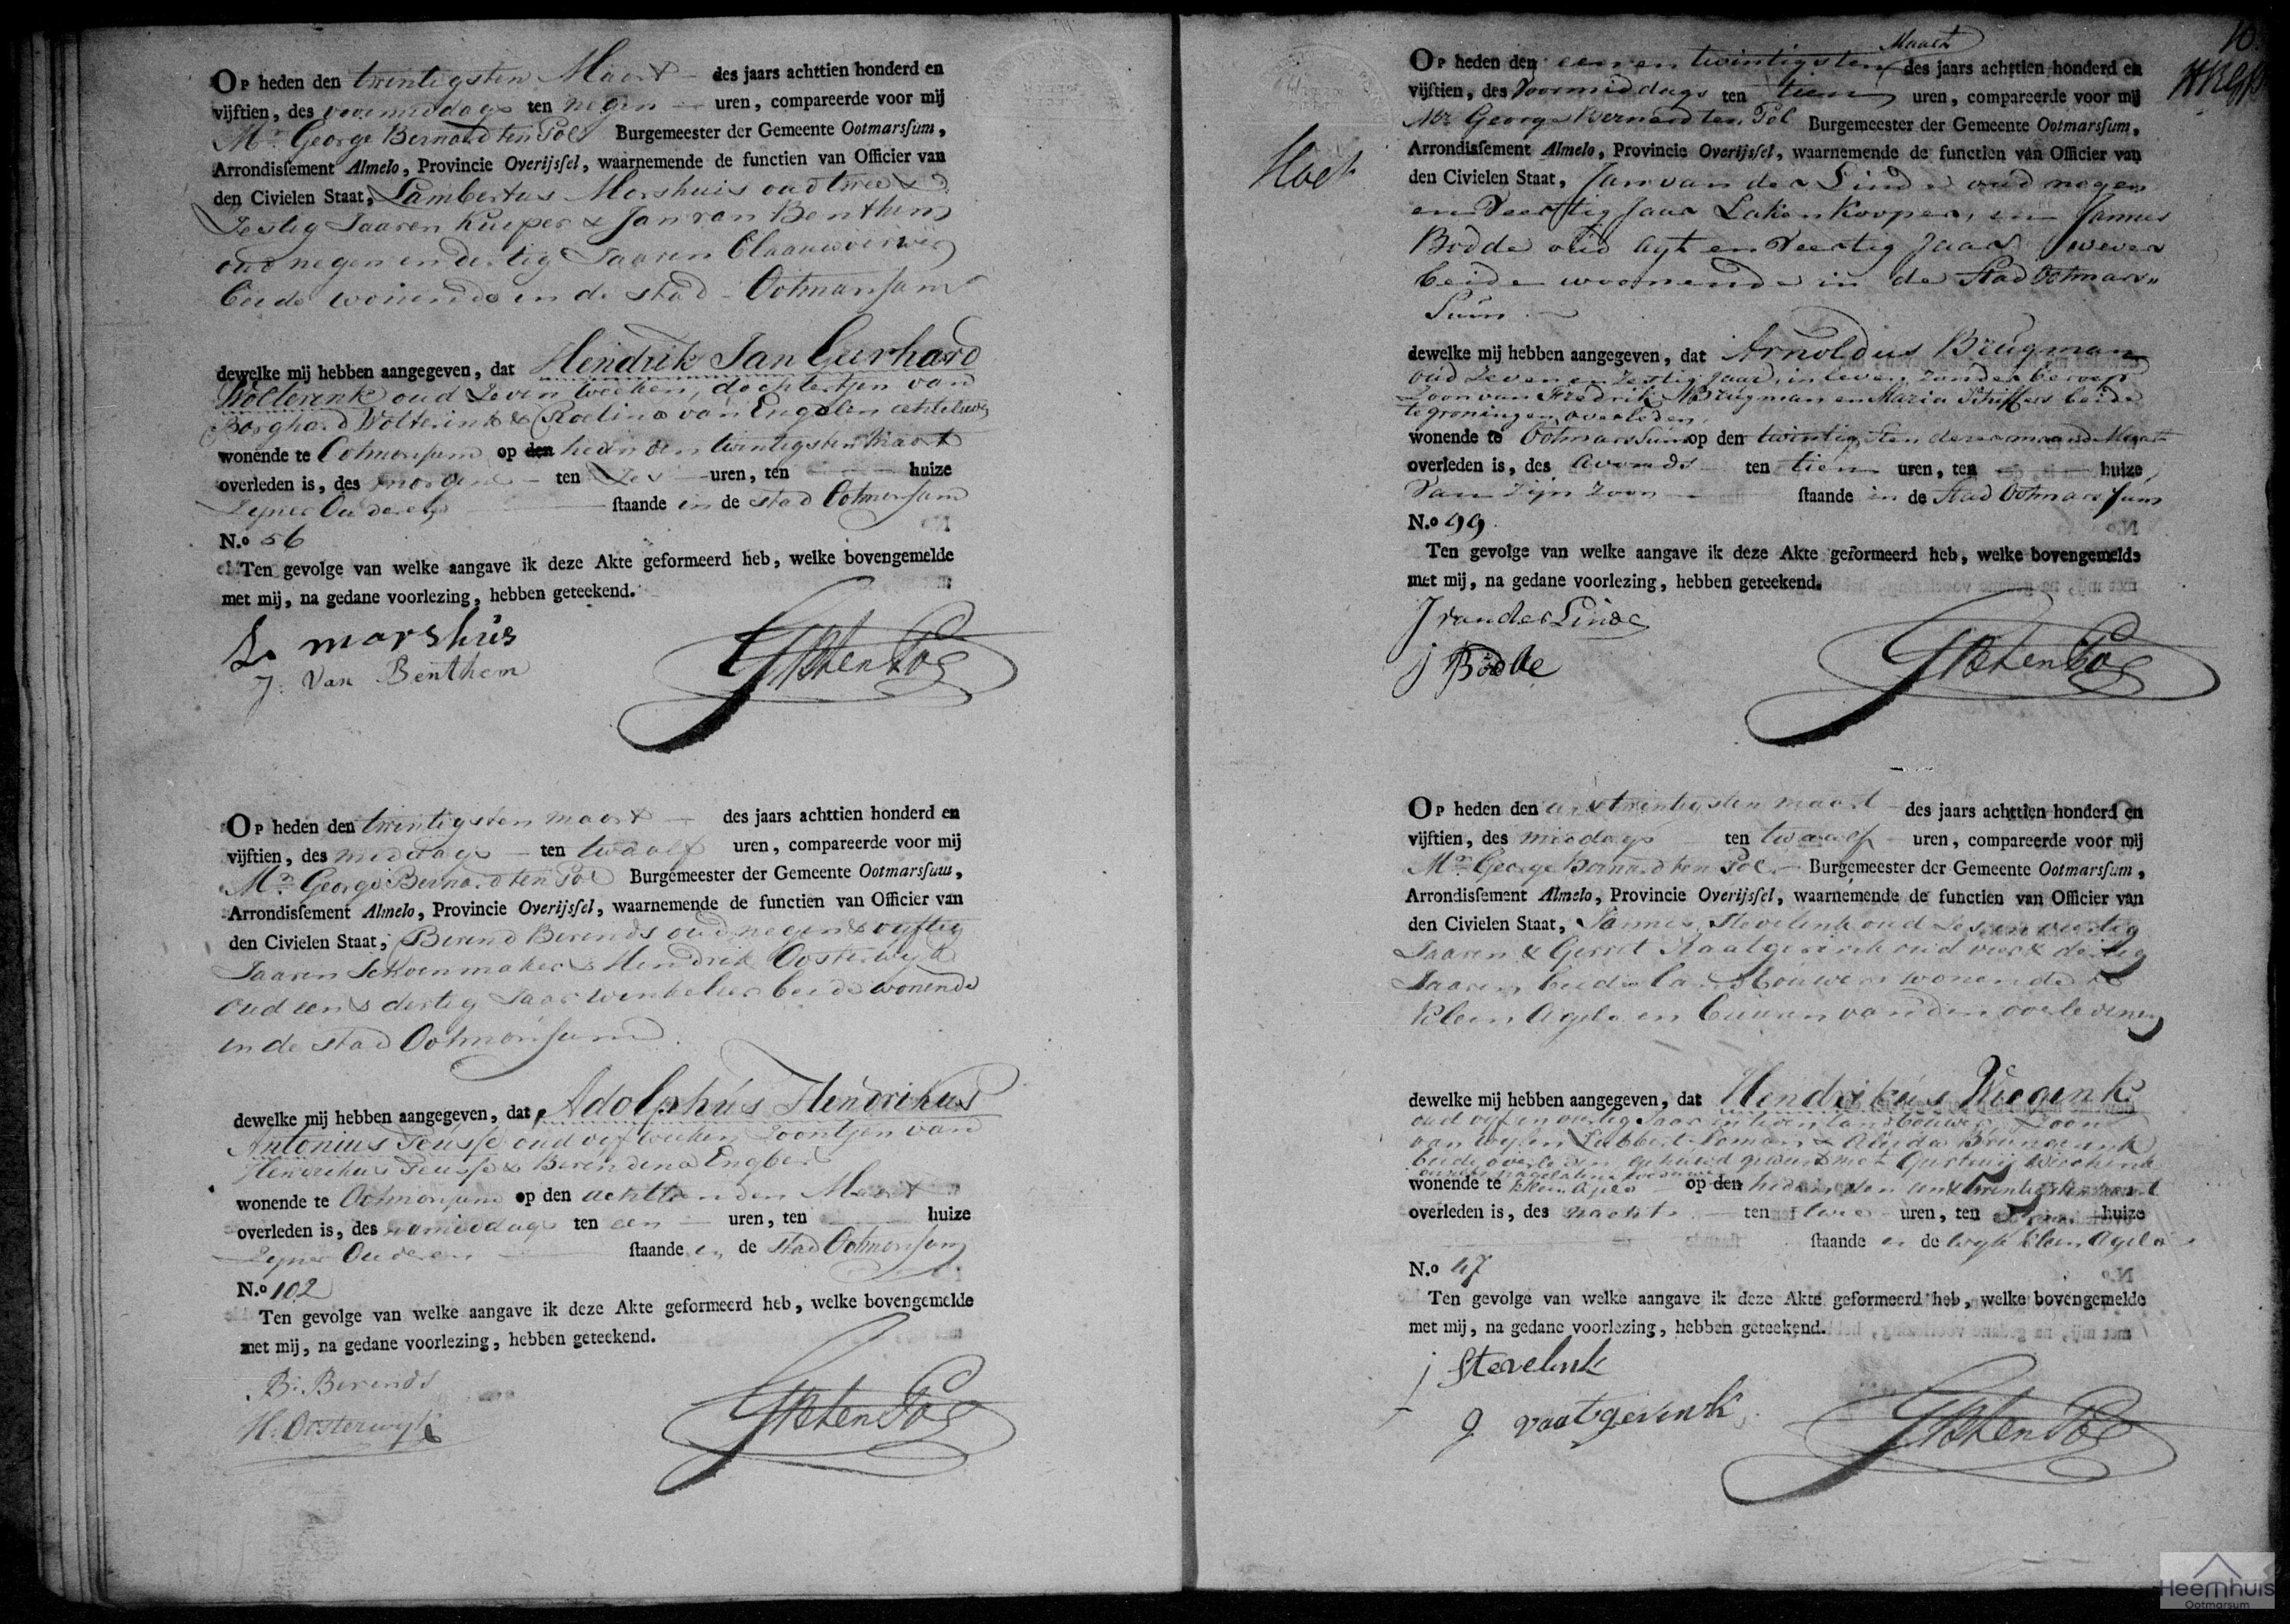 Op heden den twintigsten Maart des jaars achttien honderd en
vijftien, des voormiddags ten negen uren, compareerde voor mij
Mr. George Bernard ten Pol Burgemeester der Gemeente Ootmarssum,
Arrondissement Almelo, Provincie Overijssel, waarnemende de functien van Officier van
den Civielen Staat, Lambertus Morshuis oud twee &
Zestig Jaaren Kuiper & Jan van Benthem
oud negen en dertig Jaaren Blaauwverwer
beide wonende in de stad Ootmarsum
dewelke mij hebben aangegeven, dat Hendrik Jan Gerhard
Wolterink oud Zeven weeken, dochtertjen van
Borghard Wolterink & Roelina van Engelen echtelieden
wonende te Ootmarsum op den heden den twintigsten Maart
overleden is, des morgens ten Zes uren, ten huize
Zyner Ouderen staande in de stad Ootmarsum
N.o 56
Ten gevolge van welke aangave ik deze Akte geformeerd heb, welke bovengemelde
met mij, na gedane voorlezing, hebben geteekend.
L. marshuis
J. Van Benthem
GBtenPol
Op heden den twintigsten maart des jaars achttien honderd en
vijftien, des middags ten twaalf uren, compareerde voor mij
Mr. George Bernard ten Pol Burgemeester der Gemeente Ootmarssum,
Arrondissement Almelo, Provincie Overijssel, waarnemende de functien van Officier van
den Civielen Staat, Berend Berends oud negen & vyftig
Jaaren Schoenmaker & Hendrik Oosterwyk
oud een & dertig Jaar winkelier beide wonende
in de stad Ootmarsum
dewelke mij hebben aangegeven, dat Adolphus Hendrikus
Antonius Teusse oud vyf weeken Zoontjen van
Hendrikus Teusse & Berendina Engbers
wonende te Ootmarsum op den achttienden Maart
overleden is, des namiddags ten een uren, ten huize
Zyner Ouderen staande in de stad Ootmarsum
N.o 102
Ten gevolge van welke aangave ik deze Akte geformeerd heb, welke bovengemelde
met mij, na gedane voorlezing, hebben geteekend.
B. Berends
H. Oosterwyk
GBtenPol
10
Op heden den een en twintigsten Maart des jaars achttien honderd en
vijftien, des Voormiddags ten tien uren, compareerde voor mij
Mr. George Bernard ten Pol Burgemeester der Gemeente Ootmarssum,
Arrondissement Almelo, Provincie Overijssel, waarnemende de functien van Officier van
den Civielen Staat, Jan van der Linde oud negen
en Veertig Jaar Lakenkooper, en Jannes
Bodde oud agt en Veertig Jaar wever
beide woonende in de Stad Ootmars„
Sum
dewelke mij hebben aangegeven, dat Arnoldus Brugman
oud Zeven en Zestig Jaar, in leven zonder beroep
Zoon van Fredrik Brugman en Maria Schiffers beide
te groningen overleden,
wonende te Ootmarssum op den twintigsten dezer maand Maart
overleden is, des Avonds ten tien uren, ten huize
Van Zijn Zoon staande in de Stad Ootmarssum
N.o 99.
Ten gevolge van welke aangave ik deze Akte geformeerd heb, welke bovengemelde
met mij, na gedane voorlezing, hebben geteekend.
J van der Linde
j Bodde
GBtenPol
Op heden den een & twintigsten maart des jaars achttien honderd en
vijftien, des middags ten twaalf uren, compareerde voor mij
Mr. George Bernard ten Pol Burgemeester der Gemeente Ootmarssum,
Arrondissement Almelo, Provincie Overijssel, waarnemende de functien van Officier van
den Civielen Staat, Jannes Stevelink oud Zes en veertig
Jaaren & Gerrit Vaatgerink oud vier & dertig
Jaaren beide landbouwers wonende te
Klein Agelo en buuren van den overledenen
dewelke mij hebben aangegeven, dat Hendrikus Wiegink
oud vyf en veertig Jaar in leven landbouwer Zoon
van wylen Lubbert & Aleida Brungerink
beide overleden gehuwd geweest met
wonende te Klein Agelo op den heden den een & twintigsten maart
overleden is, des nachts ten twee uren, ten huize
staande in de wyk klein Agelo
N.o 47
Ten gevolge van welke aangave ik deze Akte geformeerd heb, welke bovengemelde
met mij, na gedane voorlezing, hebben geteekend.
j Stevelink
g vaatgerink
GBtenPol
Heemhuis
Ootmarsum